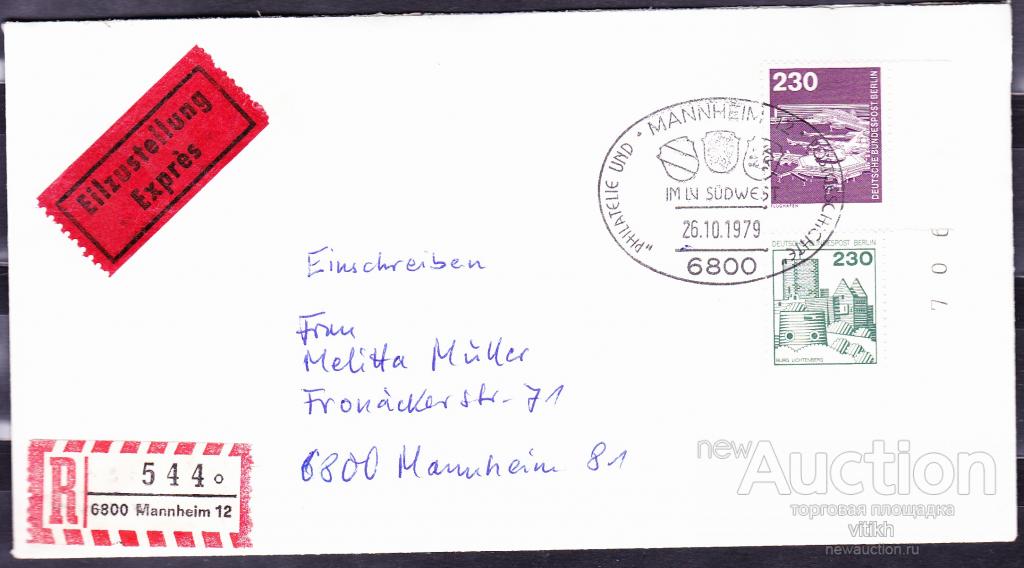 Eilzustellung
Exprès
230
DEUTSCHE BUNDESPOST BERLIN
FLUGHAFEN
MANNHEIM 12
"PHILATELIE UND POSTGESCHICHTE"
IM LV SÜDWEST
26.10.1979
6800
DEUTSCHE BUNDESPOST BERLIN
230
BURG LICHTENBERG
706
Einschreiben
Frau
Melitta Müller
Fronäckerstr. 71
6800 Mannheim 81
R
544
6800 Mannheim 12
newAuction
торговая площадка
vitikh
newauction.ru